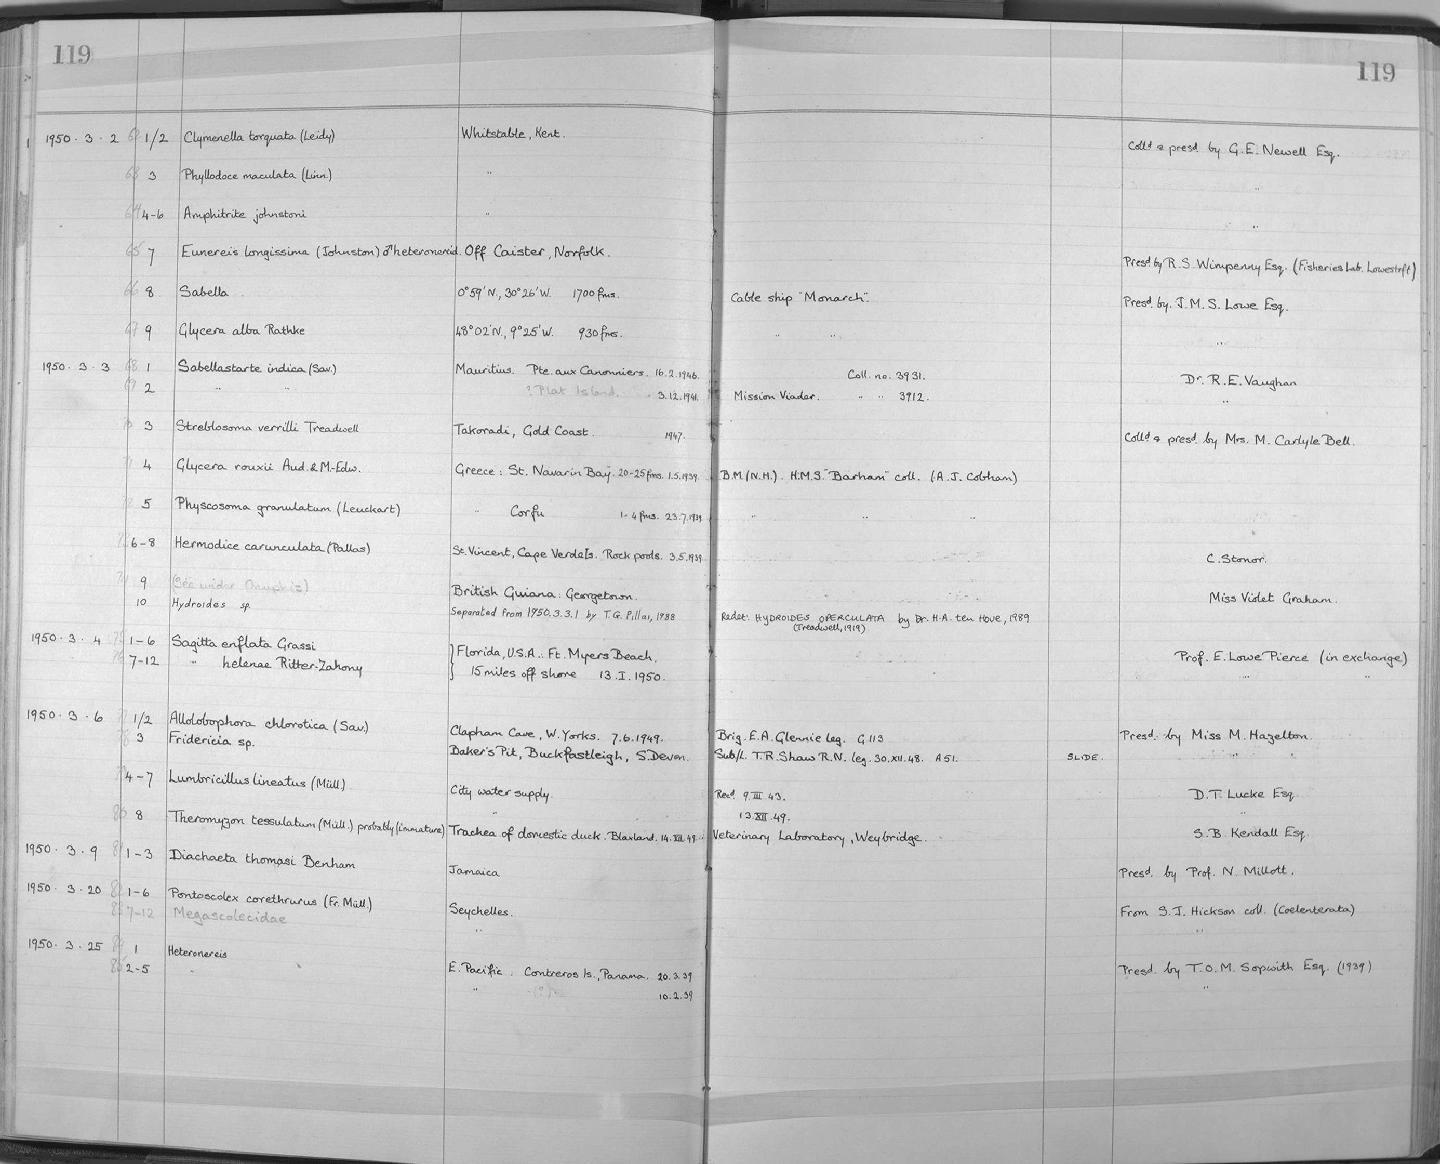 119
119
1950 · 3 · 2 1/2 Clymenella torquata (Leidy) Whitstable, Kent. Colld & presd by G.E. Newell Esq.
3 Phyllodoce maculata (Linn.) " "
4-6 Amphitrite johnstoni " "
7 Eunereis longissima (Johnston) ♂ heteronereid. Off Caister, Norfolk. Presd. by R.S. Wimpenny Esq. (Fisheries Lab. Lowestoft)
8 Sabella 0°59'N., 30°26'W. 1700 fms. Cable ship "Monarch". Presd. by. J.M.S. Lowe Esq.
9 Glycera alba Rathke 48°02'N., 9°25'W. 930 fms. " " "
1950 · 3 · 3 1 Sabellastarte indica (Sav.) Mauritius. Pte. aux Canonniers. 16.2.1946. Coll. no. 3931. Dr. R.E. Vaughan
2 " " ? Flat Island. 3.12.1941. Mission Viader. " " 3912. "
3 Streblosoma verrilli Treadwell Takoradi, Gold Coast. 1947. Colld & presd. by Mrs. M. Carlyle Bell.
4 Glycera rouxii Aud. & M-Edw. Greece: St. Navarin Bay. 20-25 fms. 1.5.1939. B.M.(N.H.). H.M.S. "Barham" coll. (A.J. Cobham)
5 Physcosoma granulatum (Leuckart) " Corfu 1-4 fms. 23.7.1939. " " "
6-8 Hermodice carunculata (Pallas) St. Vincent, Cape Verde Is. Rock pools. 3.5.1939. C. Stonor.
9 (See under Onuphis) British Guiana: Georgetown. Miss Violet Graham.
10 Hydroides sp. Separated from 1950.3.3.1 by T.G. Pillai, 1988 Redet. HYDROIDES OPERCULATA by Dr. H.A. ten Hove, 1989
(Treadwell, 1919)
1950 · 3 · 4 1-6 Sagitta enflata Grassi Florida, U.S.A.: Ft. Myers Beach, Prof. E. Lowe Pierce (in exchange)
7-12 " helenae Ritter-Zahony 15 miles off shore 13.I.1950. " "
1950 · 3 · 6 1/2 Allolobophora chlorotica (Sav.) Clapham Cave, W. Yorks. 7.6.1949. Brig. E.A. Glennie leg. G113 Presd. by Miss M. Hazelton.
3 Fridericia sp. Baker's Pit, Buckfastleigh, S. Devon. Sub/L. T.R. Shaw R.N. leg. 30.XII.48. A51. SLIDE. " "
4-7 Lumbricillus lineatus (Müll) City water supply. Recd. 9.III.43. D.T. Lucke Esq
" 13.XII.49. "
8 Theromyzon tessulatum (Müll.) probably (immature) Trachea of domestic duck. Blaxland. 14.XII.49. Veterinary Laboratory, Weybridge. S.B. Kendall Esq.
1950 · 3 · 9 1-3 Diachaeta thomasi Benham Jamaica Presd. by Prof. N. Millott.
1950 · 3 · 20 1-6 Pontoscolex corethrurus (Fr. Müll.) Seychelles. From S.J. Hickson coll. (Coelenterata)
7-12 Megascolecidae " "
1950 · 3 · 25 1 Heteronereis E. Pacific. Contreros Is., Panama. 20.3.39 Presd. by T.O.M. Sopwith Esq. (1939)
2-5 " " 10.2.39 "